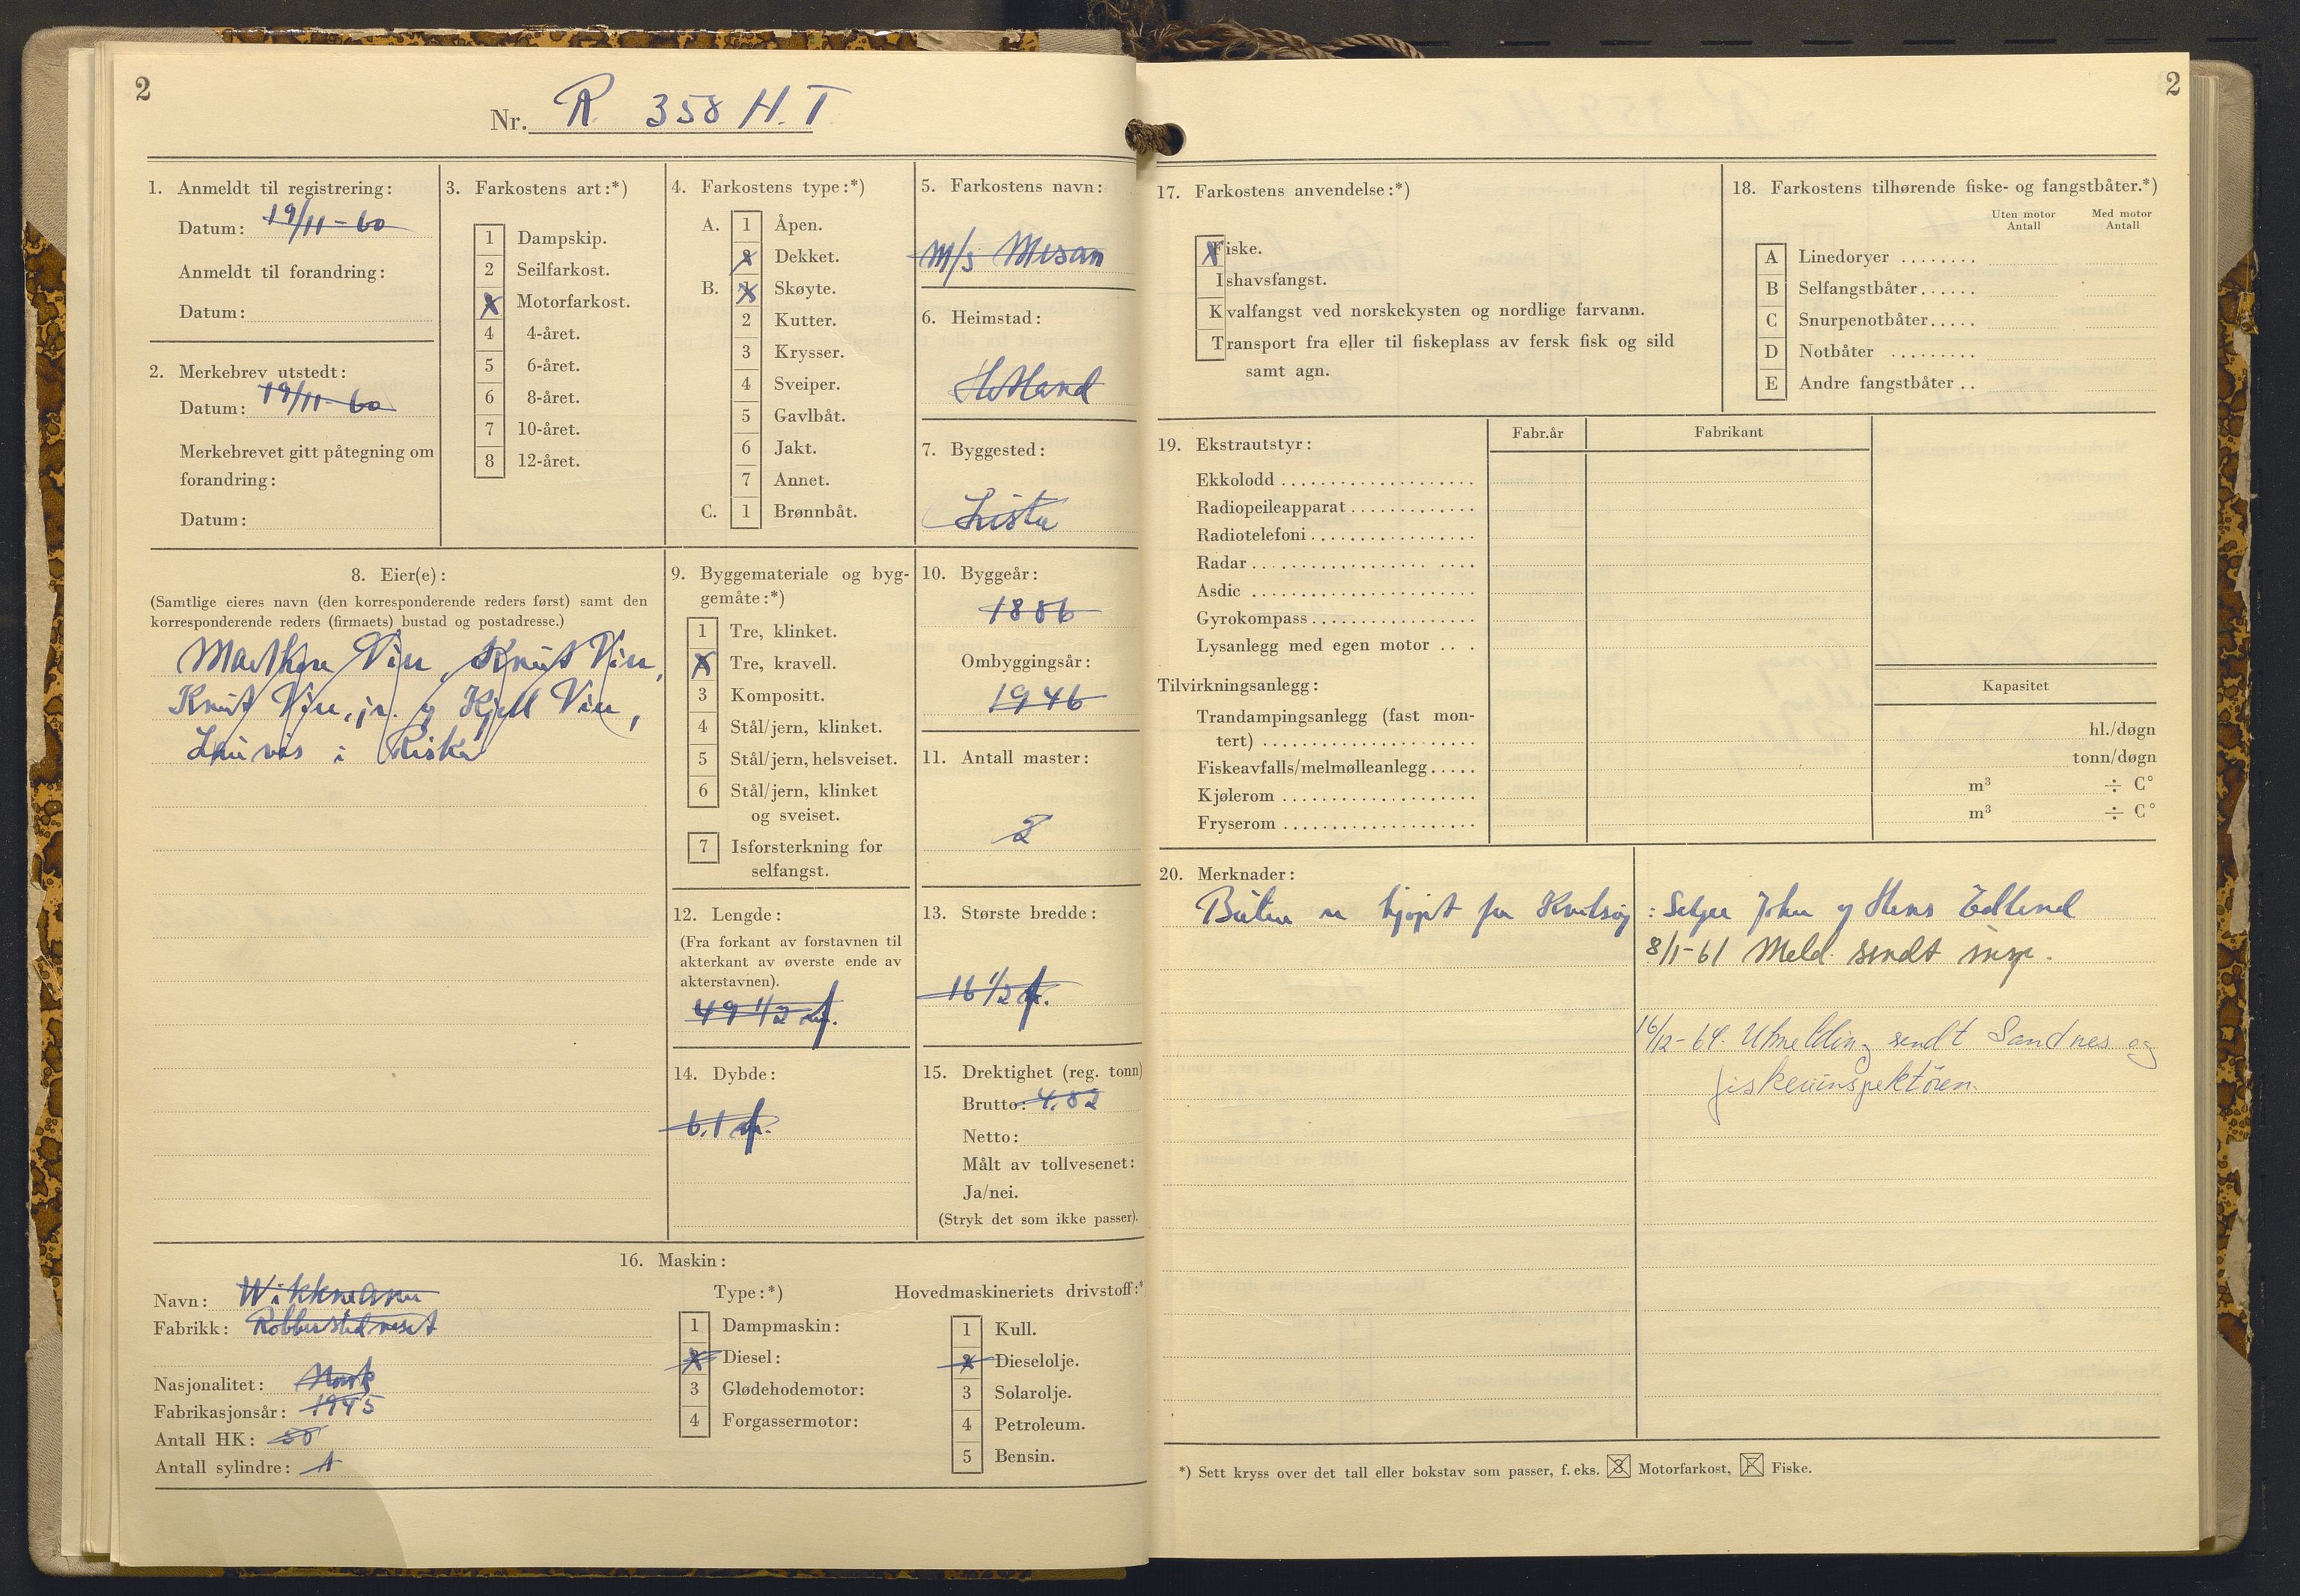 2
Nr. R. 358 H. T
1. Anmeldt til registrering:
Datum: 19/11-60
Anmeldt til forandring:
Datum:
2. Merkebrev utstedt:
Datum: 19/11-60
Merkebrevet gitt påtegning om
forandring:
Datum:
3. Farkostens art:*)
1 Dampskip.
2 Seilfarkost.
X Motorfarkost.
4 4-året.
5 6-året.
6 8-året.
7 10-året.
8 12-året.
4. Farkostens type:*)
A. 1 Åpen.
2 Dekket.
B. 1 Skøyte.
2 Kutter.
3 Krysser.
4 Sveiper.
5 Gavlbåt.
6 Jakt.
7 Annet.
C. 1 Brønnbåt.
5. Farkostens navn:
M/s Mesan
6. Heimstad:
Hetland
7. Byggested:
Lista
8. Eier(e):
(Samtlige eieres navn (den korresponderende reders først) samt den
korresponderende reders (firmaets) bustad og postadresse.)
Vier, Knut Vier,
Knut Vier, jr. og Kjell Vier,
i Riska
9. Byggemateriale og byg-
gemåte:*)
1 Tre, klinket.
X Tre, kravell.
3 Kompositt.
4 Stål/jern, klinket.
5 Stål/jern, helsveiset.
6 Stål/jern, klinket
og sveiset.
7 Isforsterkning for
selfangst.
10. Byggeår:
1886
Ombyggingsår:
1946
11. Antall master:
2
12. Lengde:
(Fra forkant av forstavnen til
akterkant av øverste ende av
akterstavnen).
49 1/2 f.
13. Største bredde:
16 1/2 f.
14. Dybde:
6.1 f.
15. Drektighet (reg. tonn)
Brutto: 4.82
Netto:
Målt av tollvesenet:
Ja/nei.
(Stryk det som ikke passer).
16. Maskin:
Navn: Wikkmann
Fabrikk:
Nasjonalitet: Norsk
Fabrikasjonsår: 1945
Antall HK: 50
Antall sylindre: 1
Type:*)
1 Dampmaskin:
X Diesel:
3 Glødehodemotor:
4 Forgassermotor:
Hovedmaskineriets drivstoff:*
1 Kull.
2 Dieselolje.
3 Solarolje.
4 Petroleum.
5 Bensin.
2
17. Farkostens anvendelse:*)
Fiske.
Ishavsfangst.
Kvalfangst ved norskekysten og nordlige farvann.
Transport fra eller til fiskeplass av fersk fisk og sild
samt agn.
18. Farkostens tilhørende fiske- og fangstbåter.*)
Uten motor Antall
Med motor Antall
A Linedoryer ........
B Selfangstbåter......
C Snurpenotbåter.....
D Notbåter .........
E Andre fangstbåter ..
19. Ekstrautstyr:
Fabr.år
Fabrikant
Ekkolodd ....................
Radiopeileapparat .............
Radiotelefoni .................
Radar .................. ....
Asdic .......................
Gyrokompass .................
Lysanlegg med egen motor ...
Tilvirkningsanlegg:
Kapasitet
Trandampingsanlegg (fast mon-
tert) ...................... hl./døgn
Fiskeavfalls/melmølleanlegg..... tonn/døgn
Kjølerom .................... m³ ÷ C°
Fryserom .................... m³ ÷ C°
20. Merknader:
Båten er kjøpt fra Kvitsøy : Selger John og Hans Edland
8/1-61 Meld. sendt insp.
16/12-64. Utmelding sendt Sandnes og
fiskeriinspektøren.
*) Sett kryss over det tall eller bokstav som passer, f. eks. 3 Motorfarkost, F Fiske.